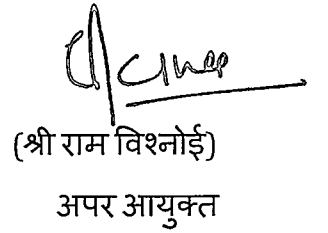 (श्री राम विश्नोई)
अपर आयुक्त